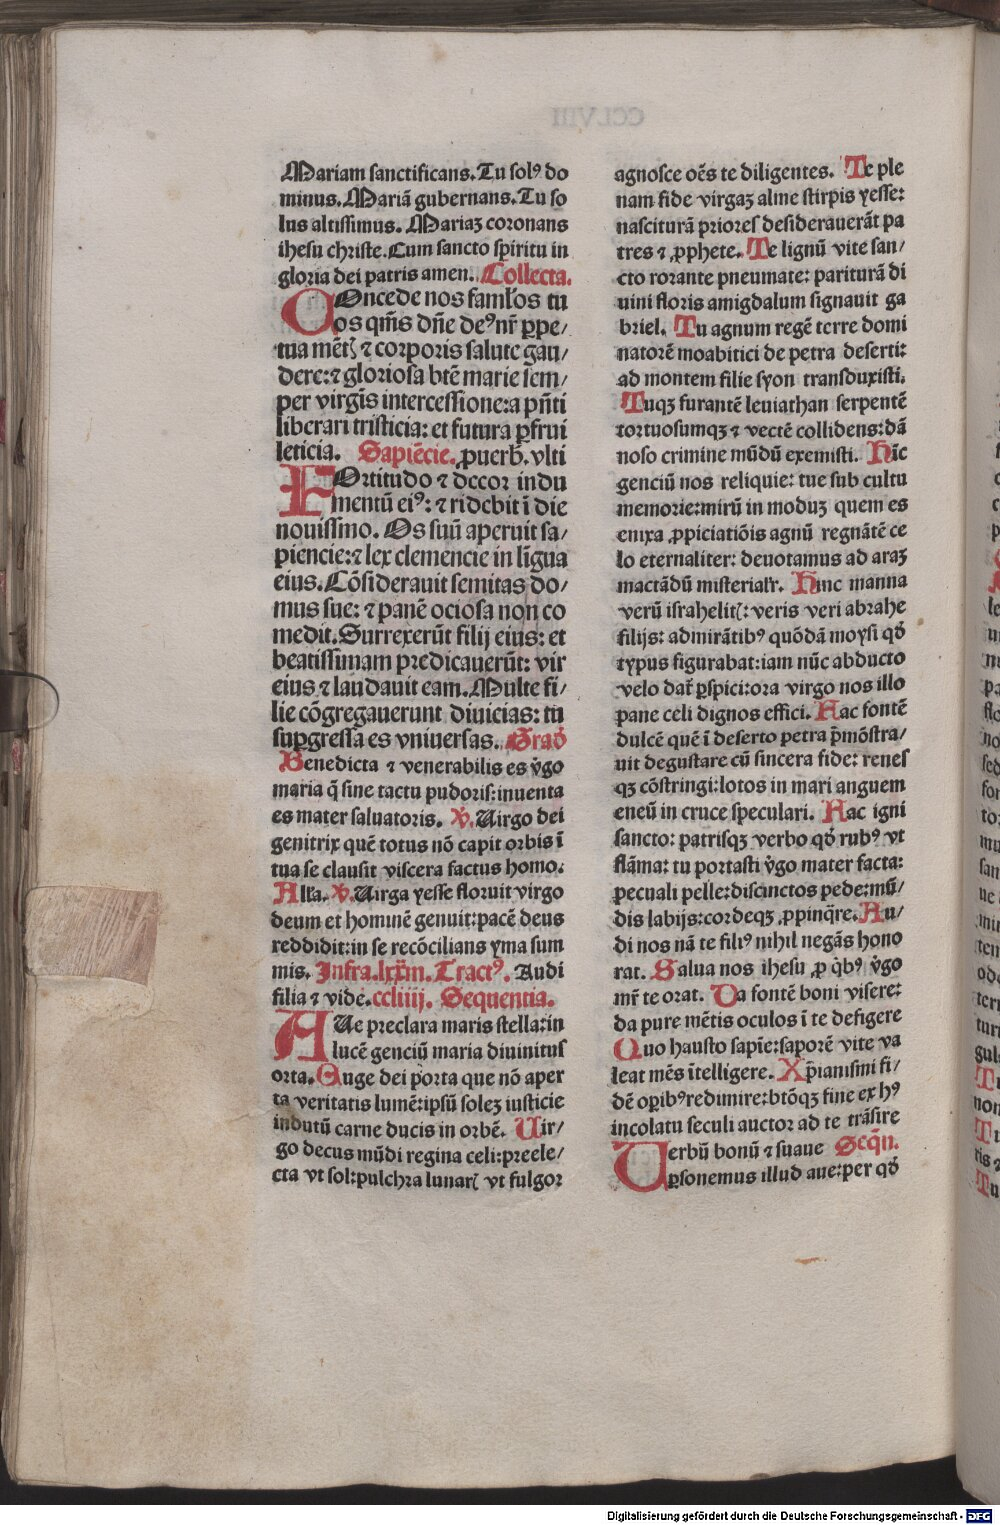 Mariam sanctificans. Tu solꝰ do
minus. Mariā gubernans. Tu so
lus altissimus. Mariaꝫ coronans
ihesu christe. Cum sancto spiritu in
gloria dei patris amen. Collecta.
COncede nos famł̓os tu
os qm̄s dn̄e deꝰ nr̄ ꝑpe/
tua mēt{ ⁊ corporis salute gau/
dere: ⁊ gloriosa btē marie sem/
per virgīs intercessione: a pn̄ti
liberari tristicia: et futura ꝑfrui
leticia. Sapiēcie. ꝓuerb̄. vlti
FOrtitudo ⁊ decor indu
mentū eiꝰ: ⁊ ridebit ī die
nouissimo. Os suū aperuit sa/
piencie: ⁊ lex clemencie in līgua
eius. Cōsiderauit semitas do/
mus sue: ⁊ panē ociosa non co
medit. Surrexerūt filij eius: et
beatissimam predicauerūt: vir
eius ⁊ laudauit eam. Multe fi/
lie cōgregauerunt diuicias: tu
suꝑgressa es vniuersas. Grad̓
Benedicta ⁊ venerabilis es v̓go
maria q̄ sine tactu pudoris: inuenta
es mater saluatoris. ℣. Uirgo dei
genitrix quē totus nō capit orbis ī
tua se clausit viscera factus homo.
Alla. ℣. Uirga yesse floruit virgo
deum et hominē genuit: pacē deus
reddidit: in se recōcilians yma sum
mis. Infra. lxxm. Tractꝰ. Audi
filia ⁊ vide. ccliiij. Sequentia.
AUe preclara maris stella: in
lucē genciū maria diuinitus
orta. Euge dei porta que nō aper
ta veritatis lumē: ipsū solez iusticie
indutū carne ducis in orbē. Uir/
go decus mūdi regina celi: preele/
cta vt sol: pulchra lunar{ vt fulgor
CCLVIII
agnosce oēs te diligentes. Te ple
nam fide virgaꝫ alme stirpis yesse:
nasciturā priores desiderauerāt pa
tres ⁊ ꝓphete. Te lignū vite san/
cto rorante pneumate: pariturā di
uini floris amigdalum signauit ga
briel. Tu agnum regē terre domi
natorē moabitici de petra deserti:
ad montem filie syon transduxisti.
Tuqꝫ furantē leuiathan serpentē
tortuosumqꝫ ⁊ vectē collidens: dā
noso crimine mūdū exemisti. Hīc
genciū nos reliquie: tue sub cultu
memorie: mirū in moduꝫ quem es
enixa ꝓpiciatiōis agnū regnātē ce
lo eternaliter: deuotamus ad araꝫ
mactādū misterialr̓. Hinc manna
verū israhelit{: veris veri abrahe
filijs: admirātibꝰ quōdā moysi qd̓
typus figurabat: iam nūc abducto
velo dat̄ ꝑspici: ora virgo nos illo
pane celi dignos effici. Hac fontē
dulcē quē ī deserto petra p̄mōstra/
uit degustare cū sincera fide: renes
qꝫ cōstringi: lotos in mari anguem
eneū in cruce speculari. Hac igni
sancto: patrisqꝫ verbo qd̓ rubꝰ vt
flāma: tu portasti v̓go mater facta:
pecuali pelle: discinctos pede: mū/
dis labijs: cordeqꝫ ꝓpinq̄re. Au/
di nos nā te filiꝰ nihil negās hono
rat. Salua nos ihesu ꝓ q̓bꝰ v̓go
mr̄ te orat. Da fontē boni visere:
da pure mētis oculos ī te defigere
Quo hausto sapīe: saporē vite va
leat mēs ītelligere. Xp̄ianismi fi/
dē oꝑibꝰ redimire: btōqꝫ fine ex hꝰ
incolatu seculi auctor ad te trāsire
Uerbū bonū ⁊ suaue Seq̄n.
ꝑsonemus illud aue: per qd̓
Digitalisierung gefördert durch die Deutsche Forschungsgemeinschaft - DFG